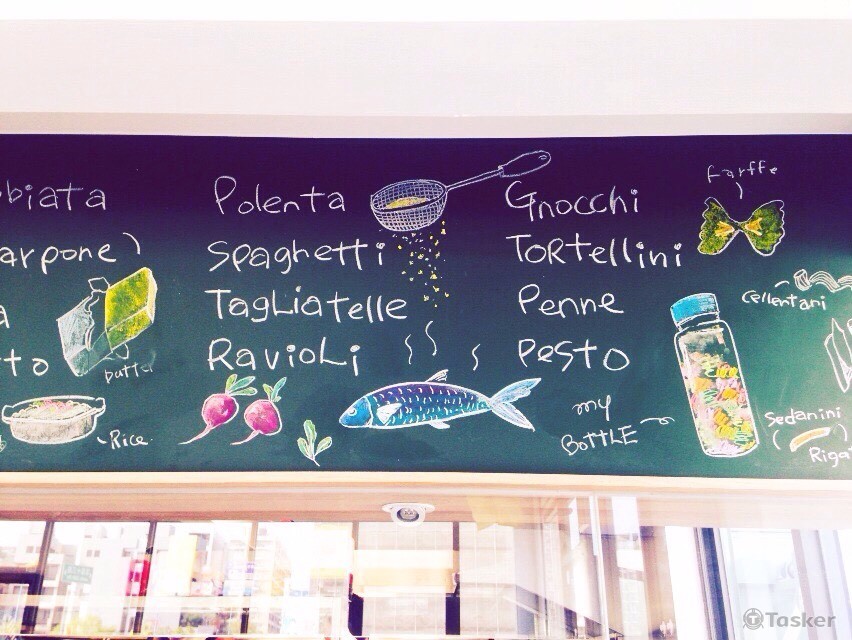 bbiata
arpone)
a
to
butter
Rice
Polenta
Spaghetti
Tagliatelle
Ravioli
Gnocchi
Tortellini
Penne
Pesto
my
Bottle
farffe
cellentani
Sedanini
(
Rigat
Tasker